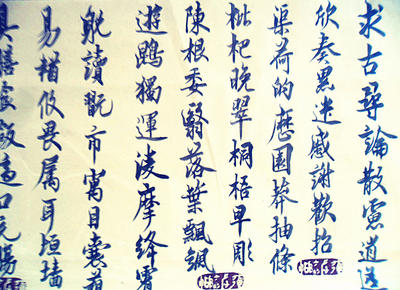 求古尋論散慮逍遙
欣奏累遣感謝歡招
渠荷的歷園莽抽條
枇杷晚翠桐梧早彫
陳根委翳落葉飄颻
遊鵾獨運凌摩絳霄
耽讀翫市寓目囊箱
易輶攸畏属耳垣墻
具膳飡飯適口充腸